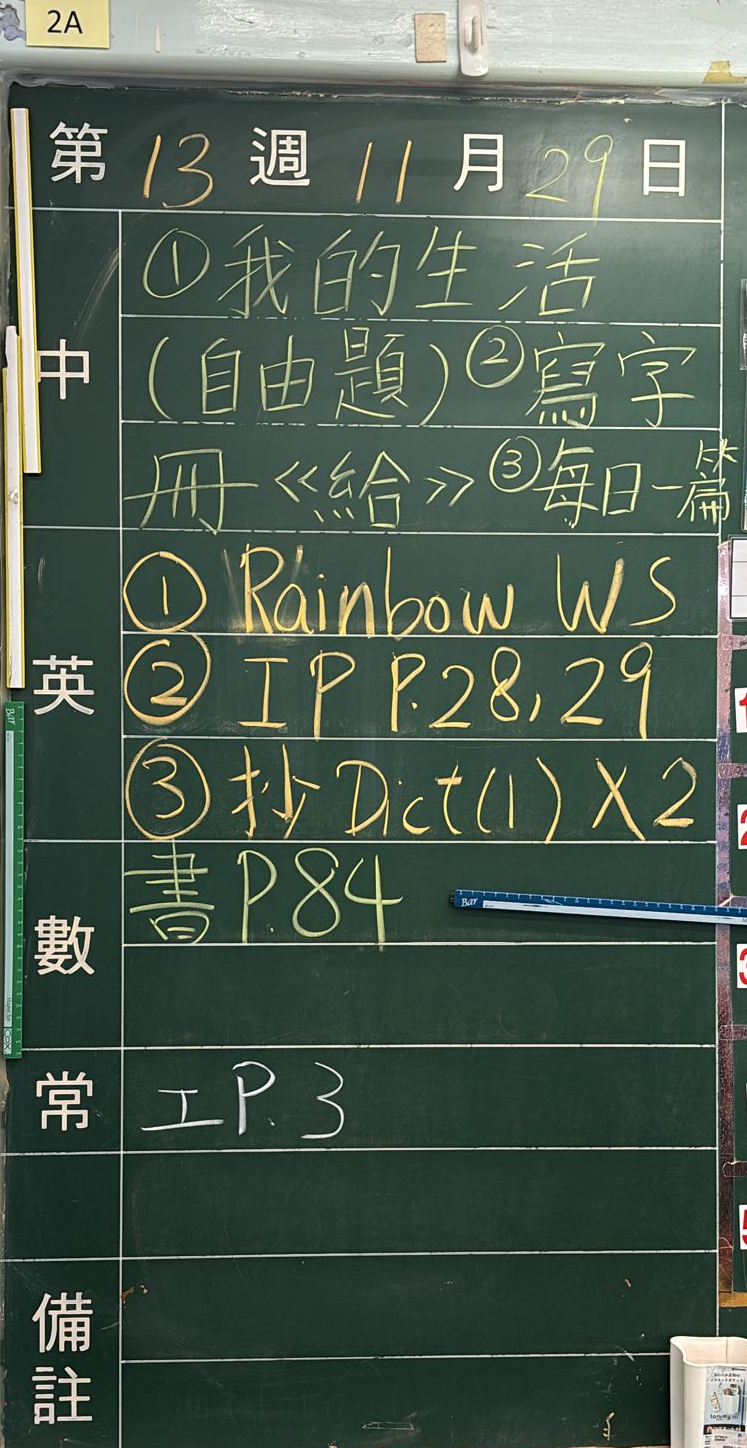 2A
第 13 週 11 月 29 日
中
①我的生活
(自由題)②寫字
冊《給》③每日一篇
英
① Rainbow WS
② IP P.28,29
③ 抄 Dict(1) X2
數
書 P.84
Bar
常
工 P.3
備註
Bar
1
2
3
5